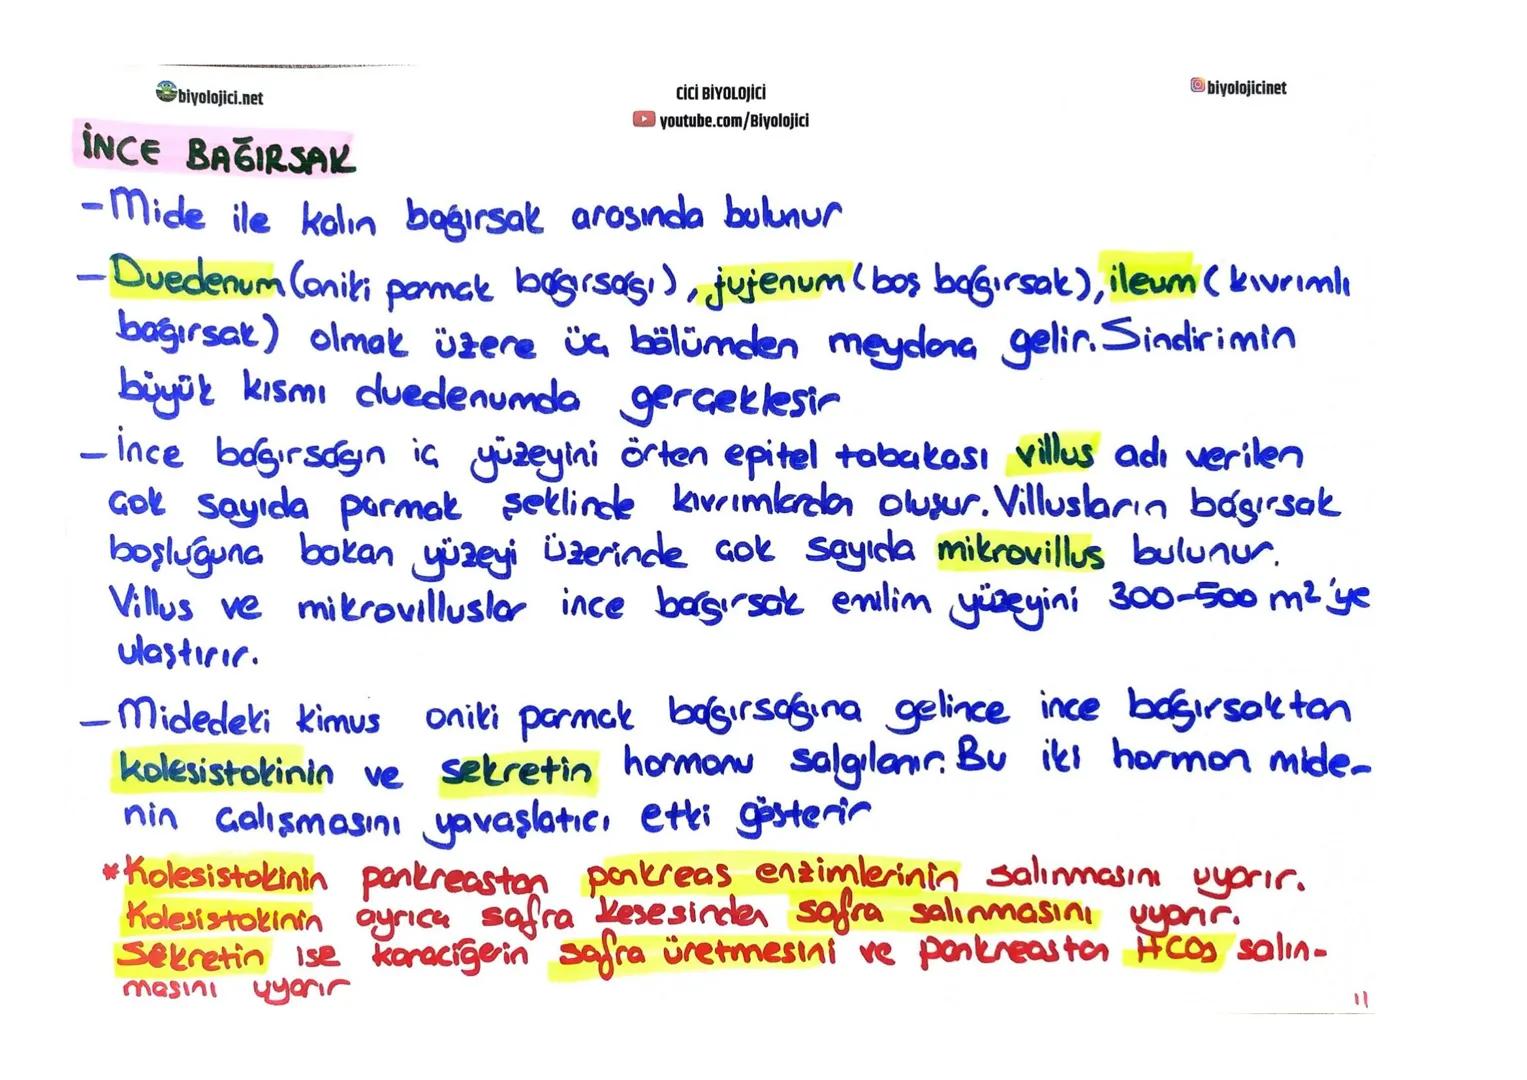 biyolojici.net
CİCİ BİYOLOJİCİ
youtube.com/Biyolojici
biyolojicinet
İNCE BAĞIRSAK
- Mide ile kalın bağırsak arasında bulunur
- Duedenum (oniki parmak bağırsağı), jujenum (boş bağırsak), ileum (kıvrımlı
bağırsak) olmak üzere üç bölümden meydana gelir. Sindirimin
büyük kısmı duedenumda gerçekleşir
- İnce bağırsağın iç yüzeyini örten epitel tabakası villus adı verilen
çok sayıda parmak şeklinde kıvrımlardan oluşur. Villusların bağırsak
boşluğuna bakan yüzeyi üzerinde çok sayıda mikrovillus bulunur.
Villus ve mikrovilluslar ince bağırsak emilim yüzeyini 300-500 m²'ye
ulaştırır.
- Midedeki kimus oniki parmak bağırsağına gelince ince bağırsaktan
kolesistokinin ve sekretin hormonu salgılanır. Bu iki hormon mide-
nin çalışmasını yavaşlatıcı etki gösterir
* Kolesistokinin pankreastan pankreas enzimlerinin salınmasını uyarır.
Kolesistokinin ayrıca safra kesesinden safra salınmasını uyarır.
Sekretin ise karaciğerin safra üretmesini ve pankreastan HCO₃ salın-
masını uyarır
11